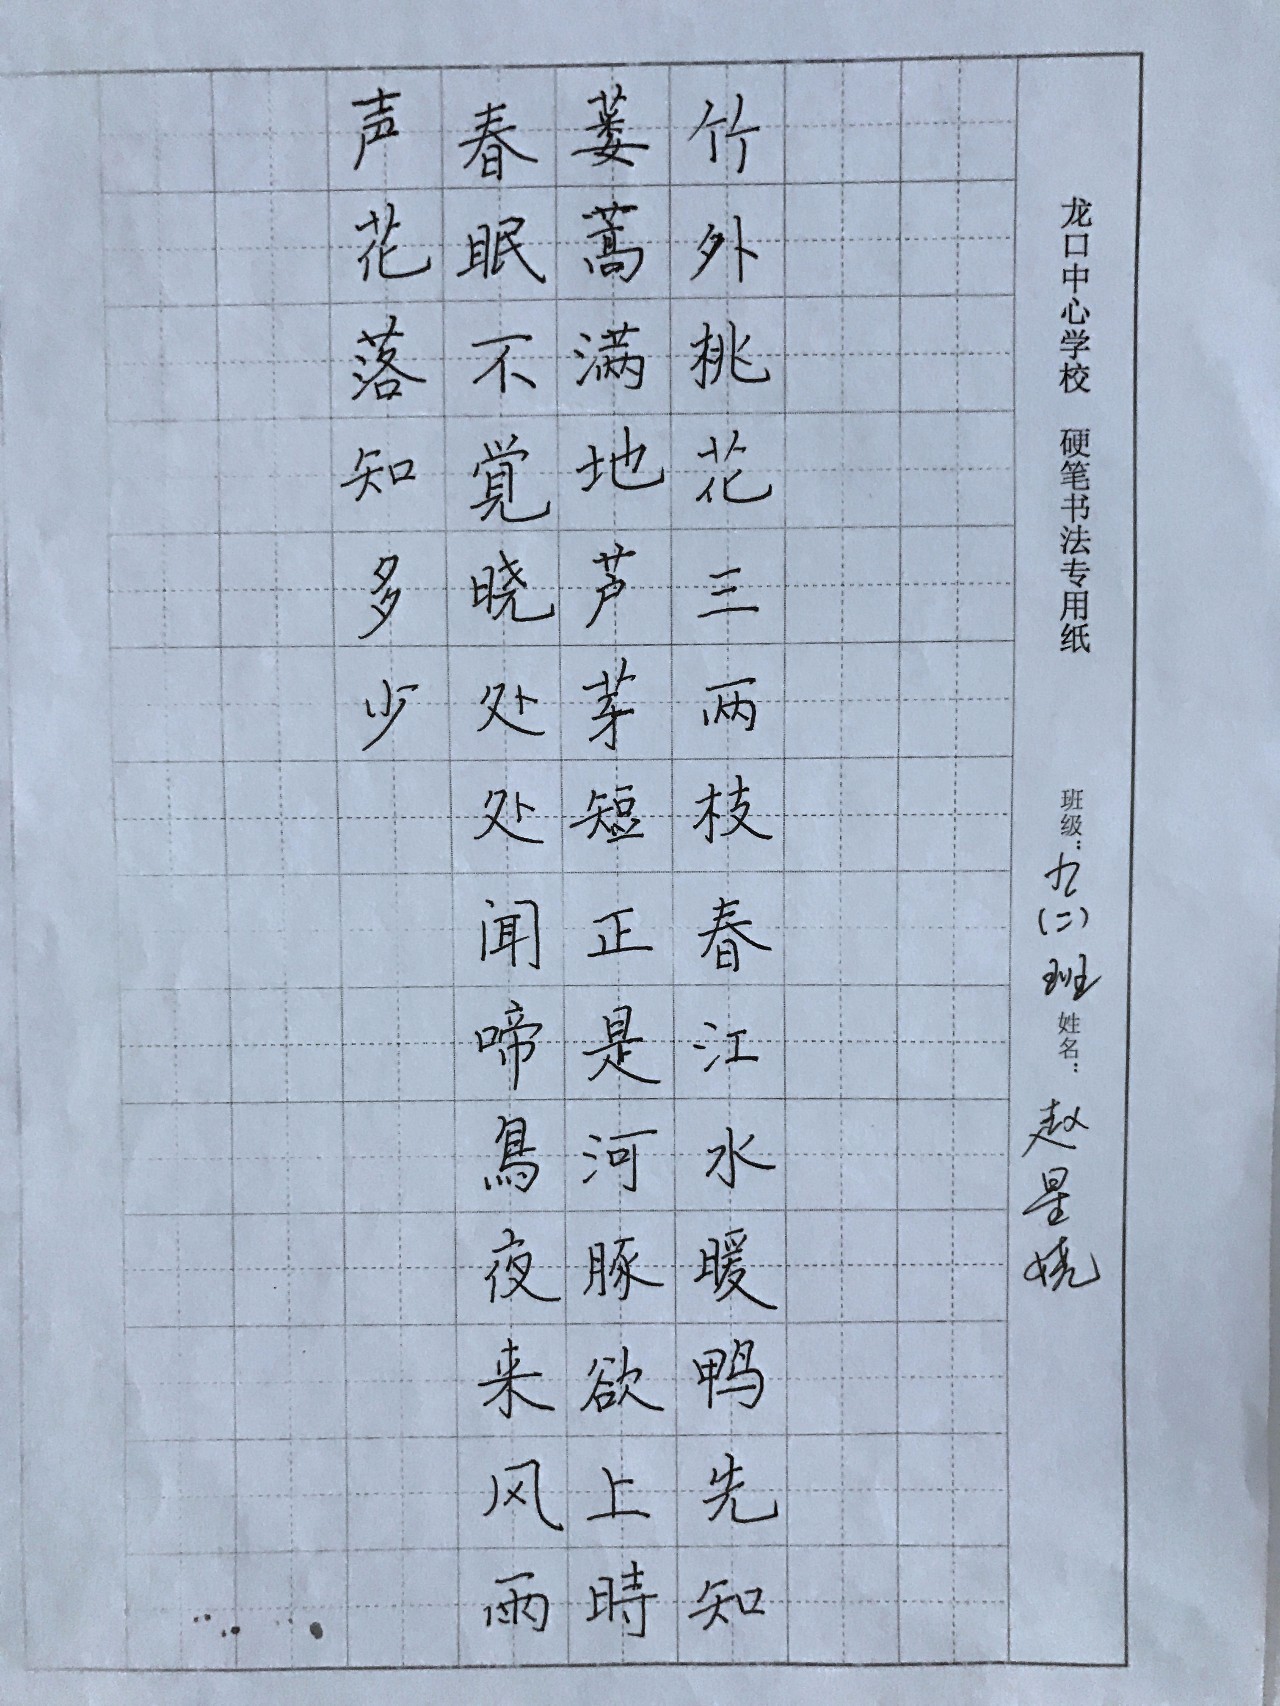 龙口中心学校 硬笔书法专用纸 班级:九(二)班 姓名:赵星娆
竹外桃花三两枝春江水暖鸭先知
蒌蒿满地芦芽短正是河豚欲上時
春眠不覚晓处处闻啼鳥夜来风雨
声花落知多少